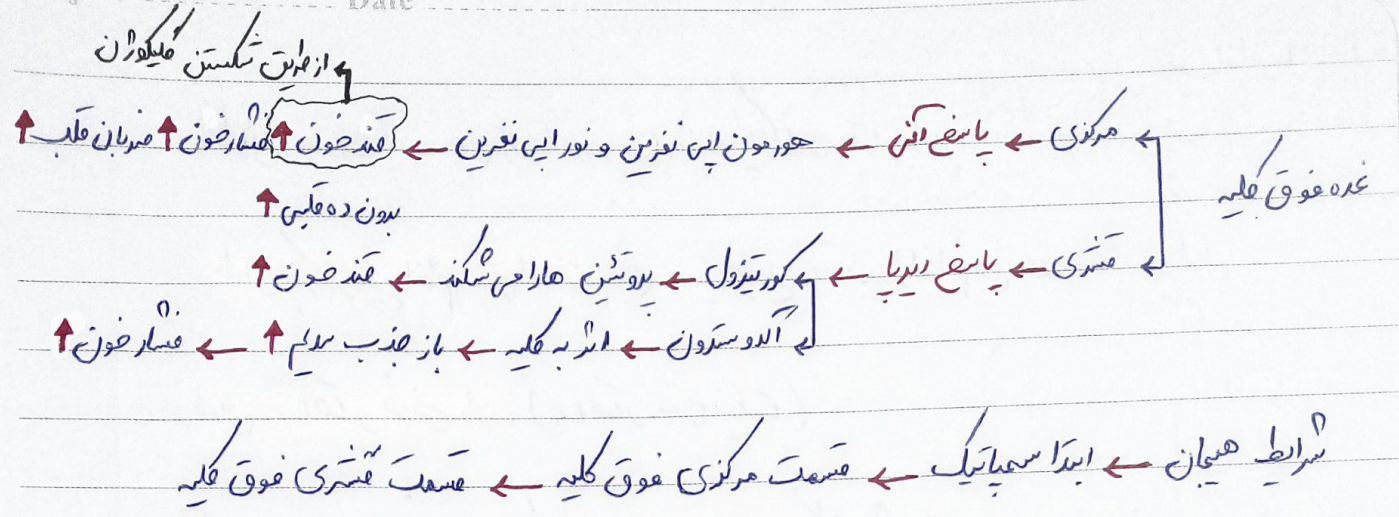 Date
از طریق شکستن گلیکوژن
غده فوق کلیه
مرکزی ← پاسخ آنی ← هورمون اپی نفرین و نور اپی نفرین ← قند خون ↑ فشار خون ↑ ضربان قلب ↑
برون ده قلبی ↑
قشری ← پاسخ دیرپا ← کورتیزول ← پروتئین ها را می شکند ← قند خون ↑
آلدوسترون ← اثر به کلیه ← باز جذب سدیم ↑ ← فشار خون ↑
شرایط هیجان ← ابتدا سمپاتیک ← قسمت مرکزی فوق کلیه ← قسمت قشری فوق کلیه